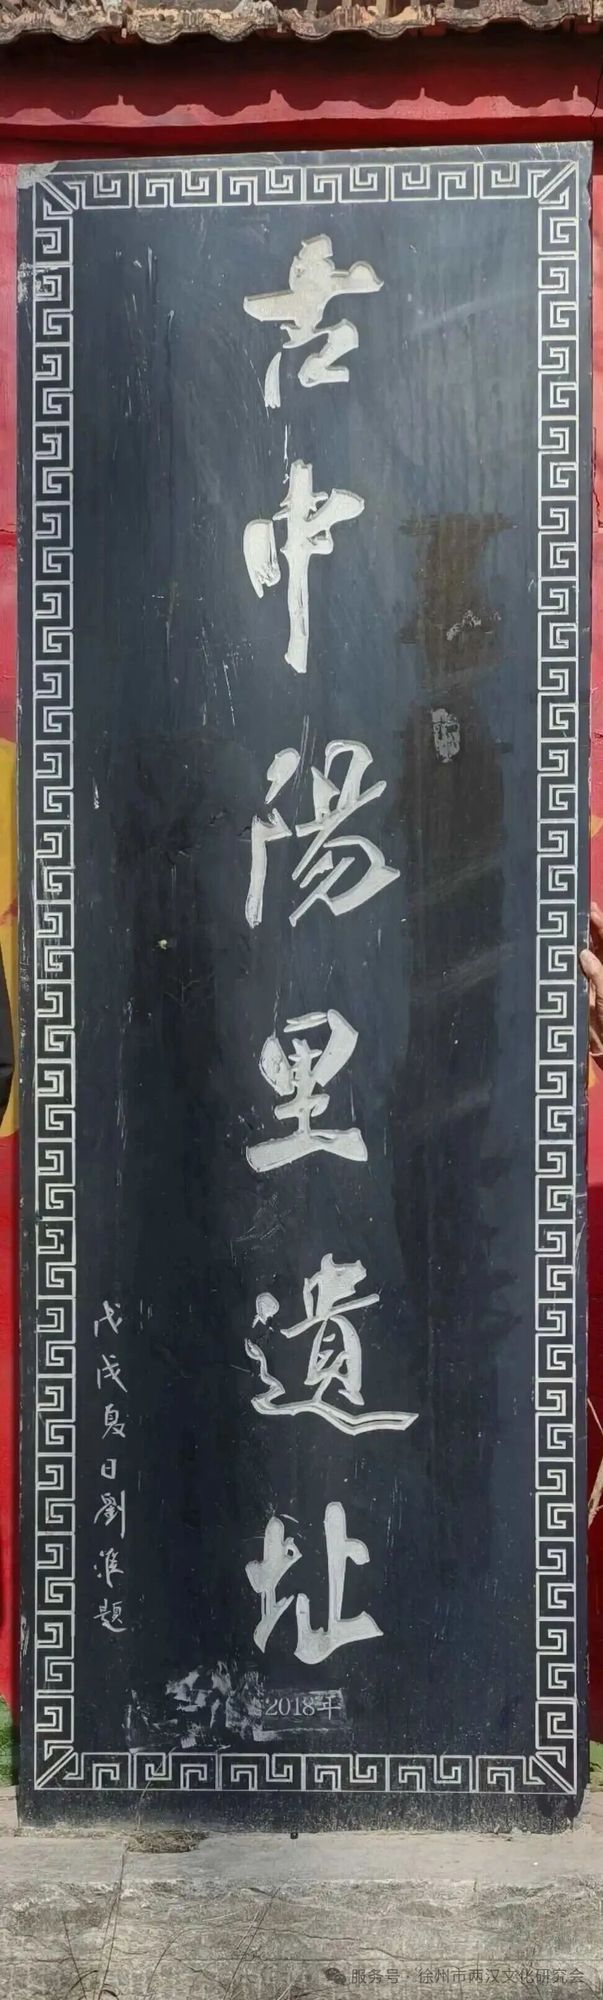 古中陽里遺址
戊戌夏日劉淮題
2018年
服务号·徐州市两汉文化研究会